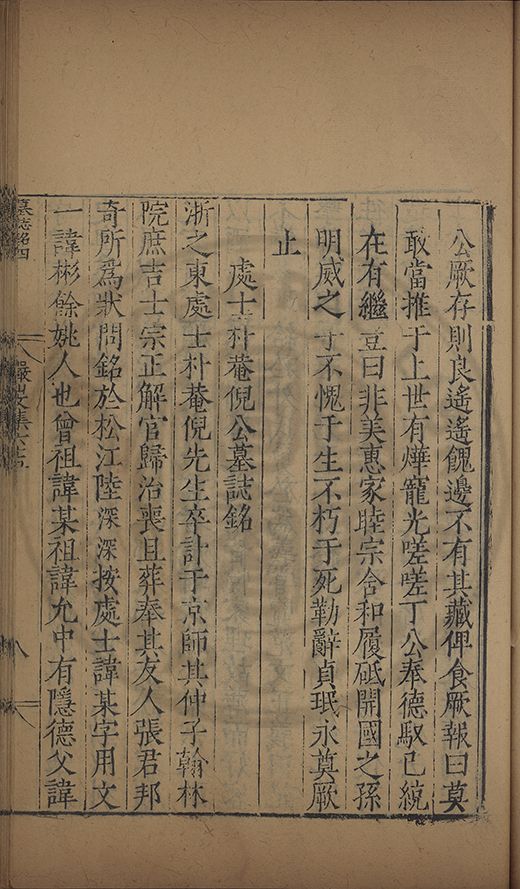 公厥存則良遙遙傀邊不有其藏俾食厥報曰莫
敢當推于上世有燁寵光嗟嗟丁公奉德馭已統
在有繼壹曰非美惠家睦宗舍和履砥開國之孫
明威之子不愧于生不朽于死勒辭貞珉永奠厥
止
處士朴菴倪公墓誌銘
浙之東處士朴菴倪先生卒計于京師其仲子翰林
院庶吉士宗正解官歸治喪且葬奉其友人張君邦
奇所爲狀問銘於松江陸深深按處士諱某字用文
一諱彬餘姚人也曾祖諱某祖諱允中有隱德父諱
墓志銘四
儼山集六十二
八